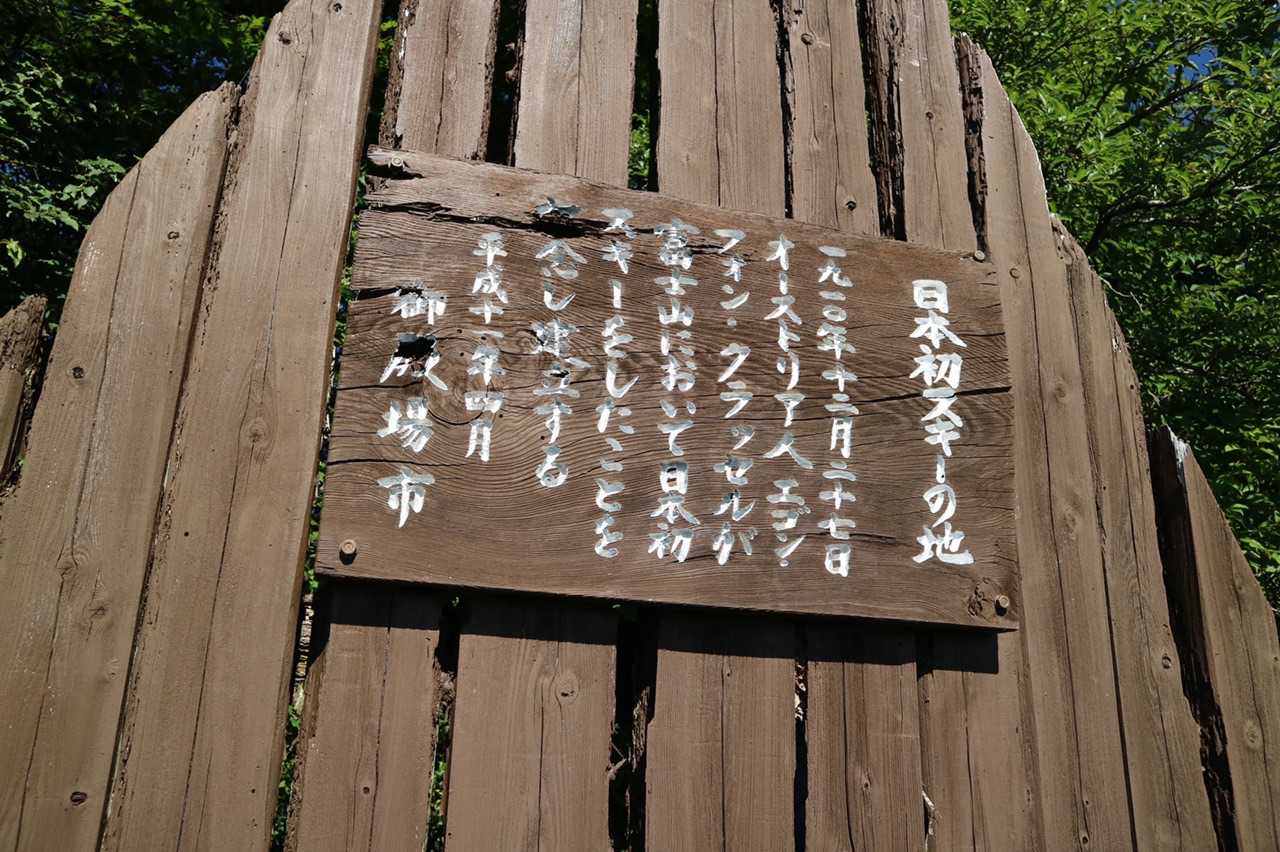 日本初スキーの地
一九一〇年十二月二十七日
オーストリア人エゴン
フォン・クラッセルが
富士山において日本初
スキーをしたことを
念し建立する
平成十一年四月
御殿場市